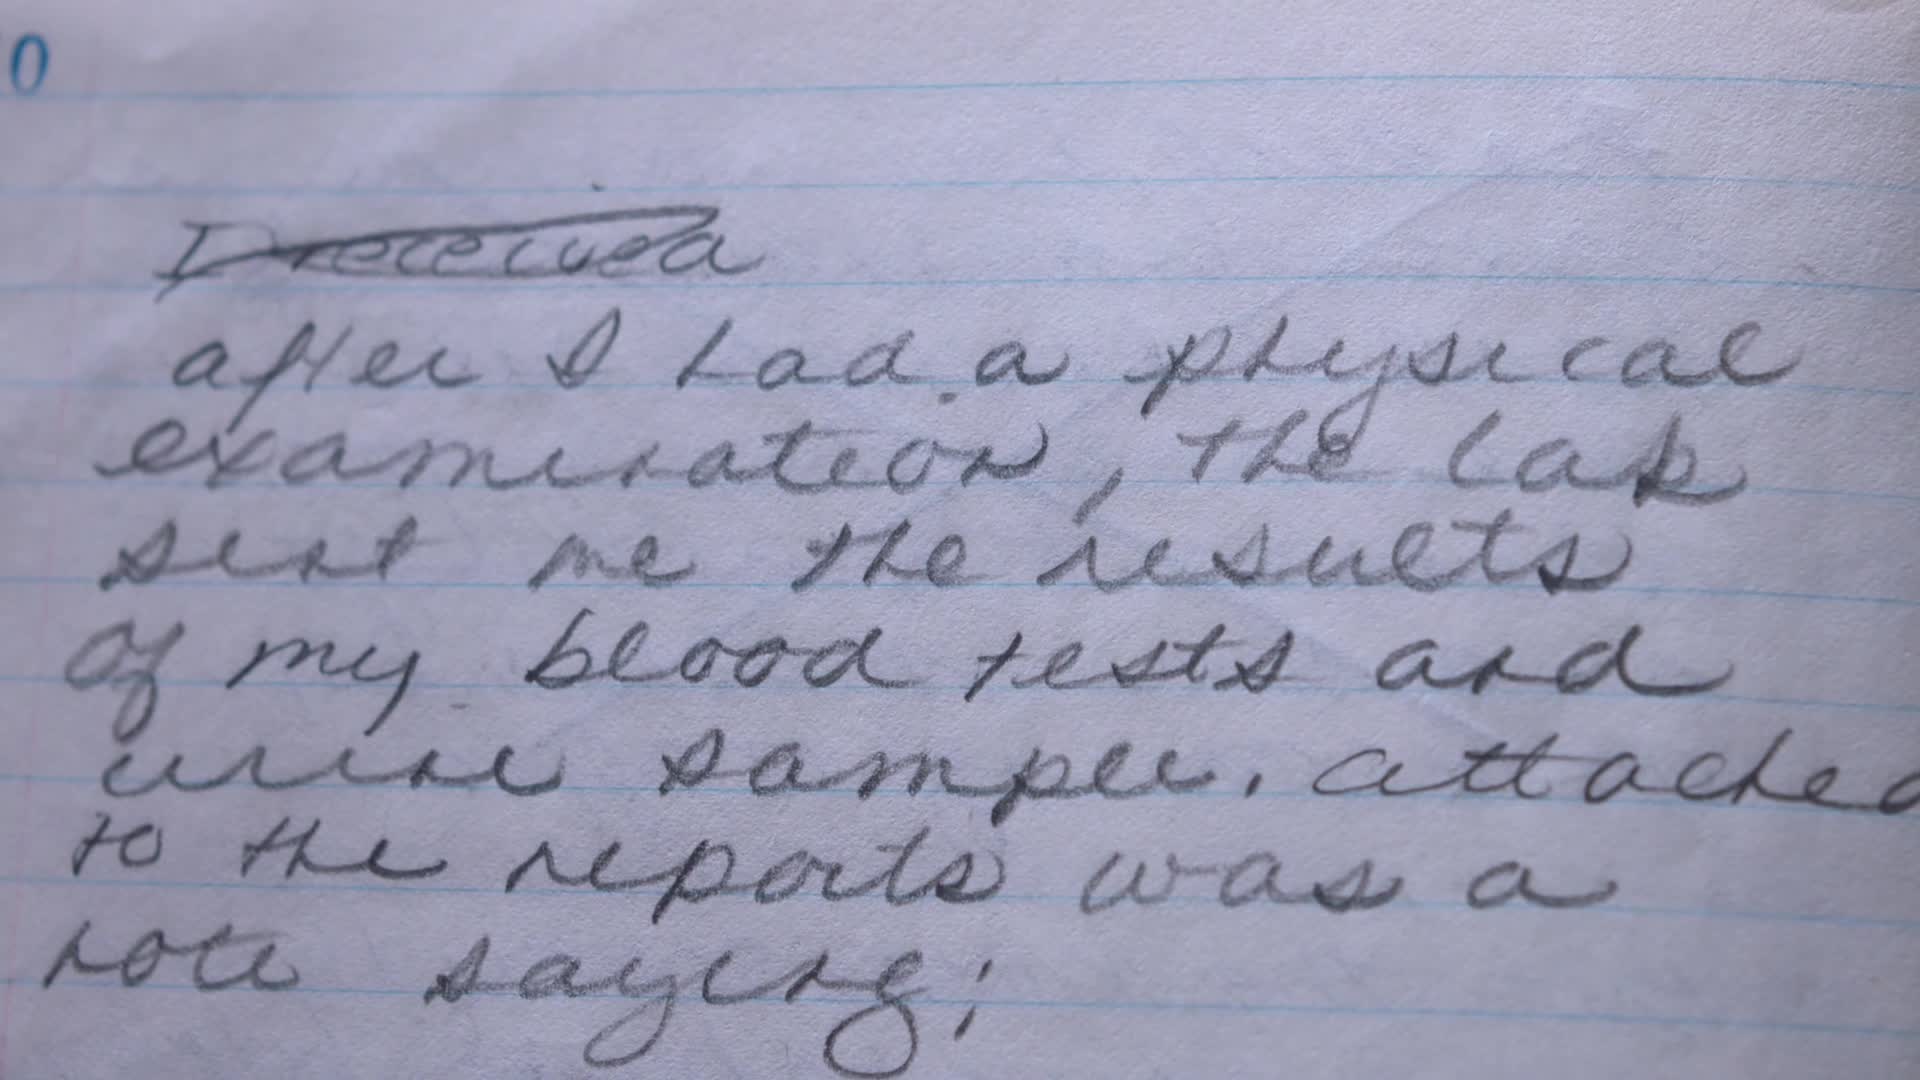 0
I received
after I had a physical
examination, the lab
sent me the results
of my blood tests and
urine sample. attached
to the reports was a
note saying;